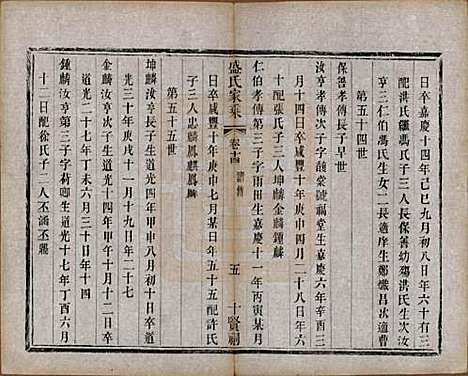 日卒嘉慶十四年己巳九月初八日年六十有三
配洪氏繼馮氏子三人長保善幼殤洪氏生次汝
亨三仁伯馮氏生女二長適庠生鄭 昌次適曹
第五十四世
保善孝傳長子早世
汝亨孝傳次子字 號福堂生嘉慶六年辛酉三
月十四日卒咸豐十年庚申四月二十八日年六
十配張氏子三人坤麟金麟鍾麟
仁伯孝傳第三子字雨田生嘉慶十一年丙寅某月
盛氏家乘
卷十四
五
十賢祠
日卒咸豐十年庚申七月某日年五十五配許氏
子三人忠麟鳳麒鳳麟
第五十五世
坤麟汝亨長子生道光四年甲申八月十五日卒道
光三十年庚戌十一月十九日年二十七
金麟汝亨次子生道光十四年甲午十月十二日卒
道光二十七年丁未六月三十日年十四
鍾麟汝亨第三子字荷卿生道光十七年丁酉六月
十二日配徐氏子二人丕謨丕